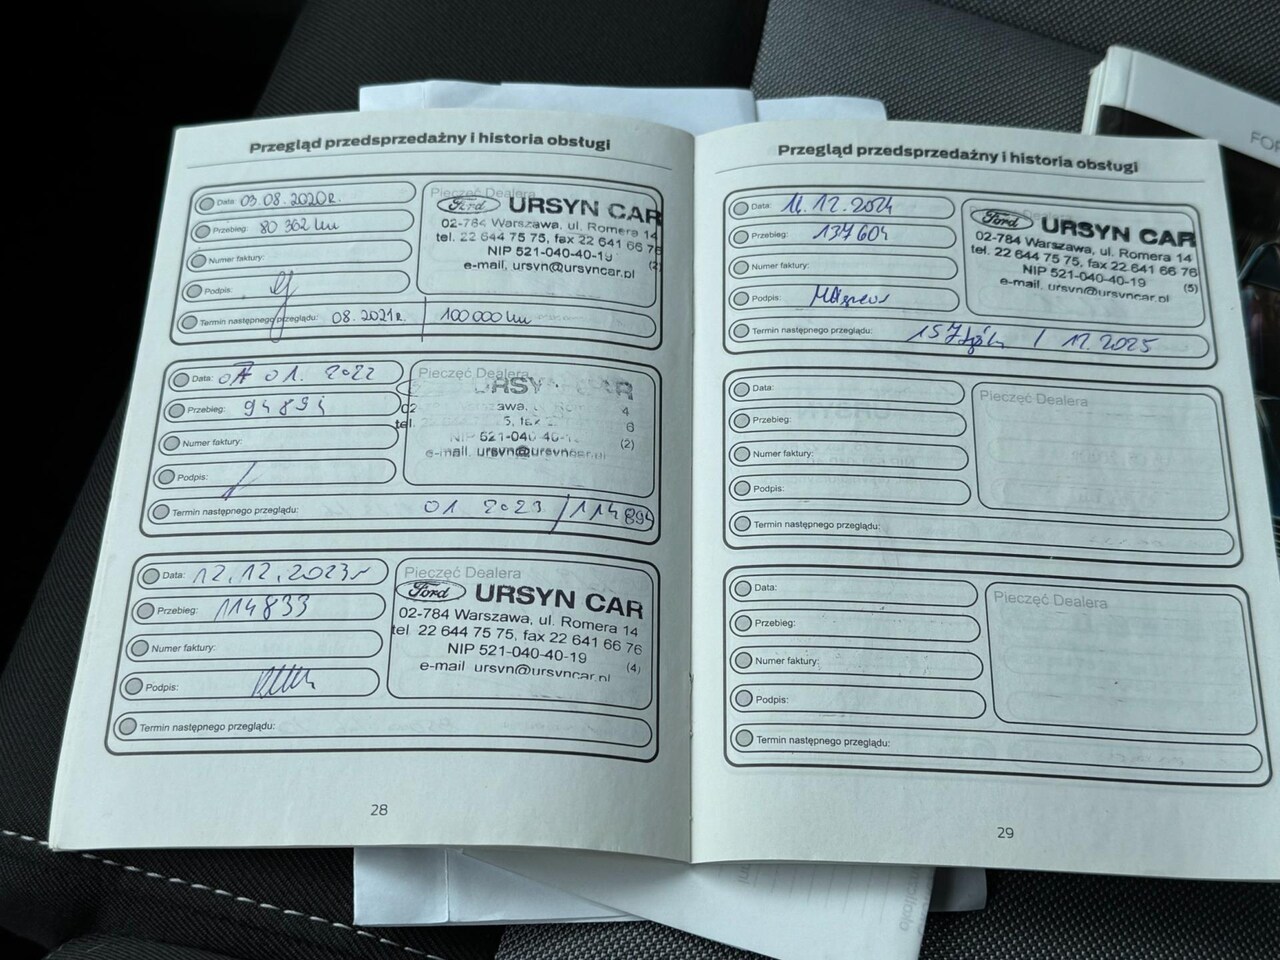 Przegląd przedsprzedażny i historia obsługi
Data: 03.08.2020r.
Przebieg: 80 362 km
Numer faktury:
Podpis:
Termin następnego przeglądu: 08.2021r. | 100 000 km
Pieczęć Dealera
Ford URSYN CAR
02-784 Warszawa, ul. Romera 14
tel. 22 644 75 75, fax 22 641 66 76
NIP 521-040-40-19
(2)
e-mail, ursyn@ursyncar.pl
Data: 07 01. 2022
Przebieg: 94 894
Numer faktury:
Podpis:
Termin następnego przeglądu: 01 2023 / 114 894
Pieczęć Dealera
URSYN CAR
NIP 521-040-40-
(2)
e-mail, ursyn@ursyncar.pl
Data: 12.12.2023r
Przebieg: 114833
Numer faktury:
Podpis:
Termin następnego przeglądu:
Pieczęć Dealera
Ford URSYN CAR
02-784 Warszawa, ul. Romera 14
tel 22 644 75 75, fax 22 641 66 76
NIP 521-040-40-19
(4)
e-mail ursyn@ursyncar.pl
28
Przegląd przedsprzedażny i historia obsługi
Data: 16.12.2024
Przebieg: 137604
Numer faktury:
Podpis:
Termin następnego przeglądu: 157 / 12.2025
Ford URSYN CAR
02-784 Warszawa, ul. Romera 14
tel. 22 644 75 75, fax 22 641 66 76
NIP 521-040-40-19
(5)
e-mail, ursyn@ursyncar.pl
Data:
Przebieg:
Numer faktury:
Podpis:
Termin następnego przeglądu:
Pieczęć Dealera
Data:
Przebieg:
Numer faktury:
Podpis:
Termin następnego przeglądu:
Pieczęć Dealera
29